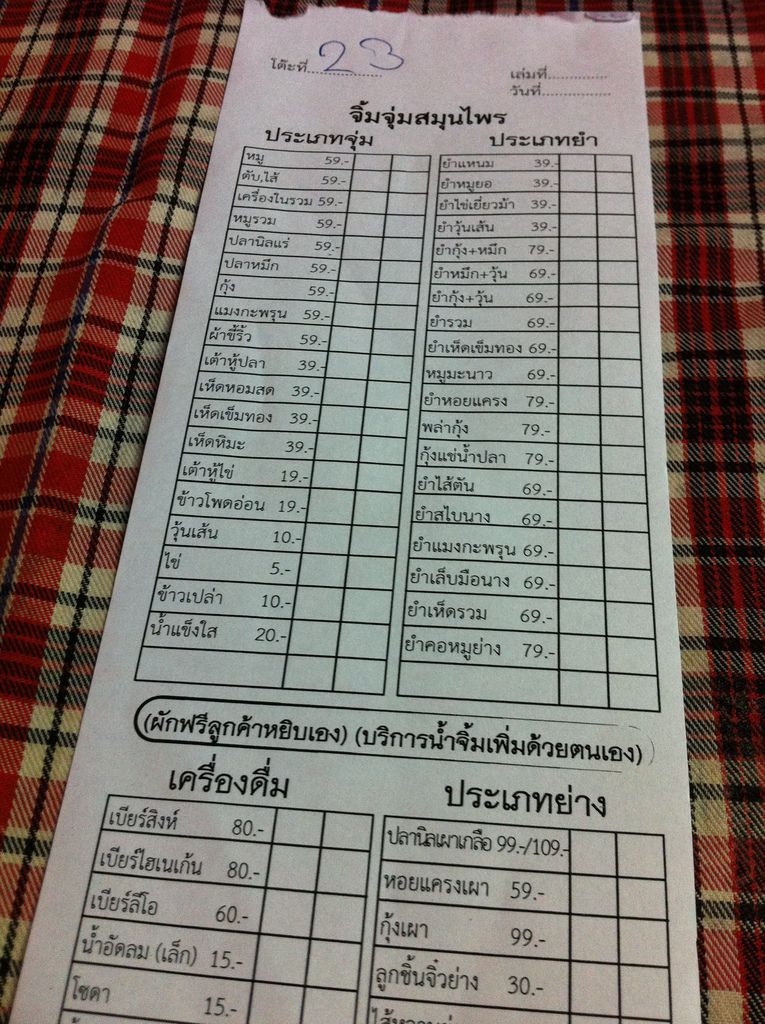 โต๊ะที่..............23
เล่มที่..............
วันที่................
จิ้มจุ่มสมุนไพร
ประเภทจุ่ม
หมู 59.-
ตับ,ไส้ 59.-
เครื่องในรวม 59.-
หมูรวม 59.-
ปลานิลแร่ 59.-
ปลาหมึก 59.-
กุ้ง 59.-
แมงกะพรุน 59.-
ผ้าขี้ริ้ว 59.-
เต้าหู้ปลา 39.-
เห็ดหอมสด 39.-
เห็ดเข็มทอง 39.-
เห็ดหิมะ 39.-
เต้าหู้ไข่ 19.-
ข้าวโพดอ่อน 19.-
วุ้นเส้น 10.-
ไข่ 5.-
ข้าวเปล่า 10.-
น้ำแข็งใส 20.-
ประเภทยำ
ยำแหนม 39.-
ยำหมูยอ 39.-
ยำไข่เยี่ยวม้า 39.-
ยำวุ้นเส้น 39.-
ยำกุ้ง+หมึก 79.-
ยำหมึก+วุ้น 69.-
ยำกุ้ง+วุ้น 69.-
ยำรวม 69.-
ยำเห็ดเข็มทอง 69.-
หมูมะนาว 69.-
ยำหอยแครง 79.-
พล่ากุ้ง 79.-
กุ้งแช่น้ำปลา 79.-
ยำไส้ตัน 69.-
ยำสไบนาง 69.-
ยำแมงกะพรุน 69.-
ยำเล็บมือนาง 69.-
ยำเห็ดรวม 69.-
ยำคอหมูย่าง 79.-
(ผักฟรีลูกค้าหยิบเอง) (บริการน้ำจิ้มเพิ่มด้วยตนเอง)
เครื่องดื่ม
เบียร์สิงห์ 80.-
เบียร์ไฮเนเก้น 80.-
เบียร์ลีโอ 60.-
น้ำอัดลม (เล็ก) 15.-
โซดา 15.-
ประเภทย่าง
ปลานิลเผาเกลือ 99.-/109.-
หอยแครงเผา 59.-
กุ้งเผา 99.-
ลูกชิ้นจิ๋วย่าง 30.-